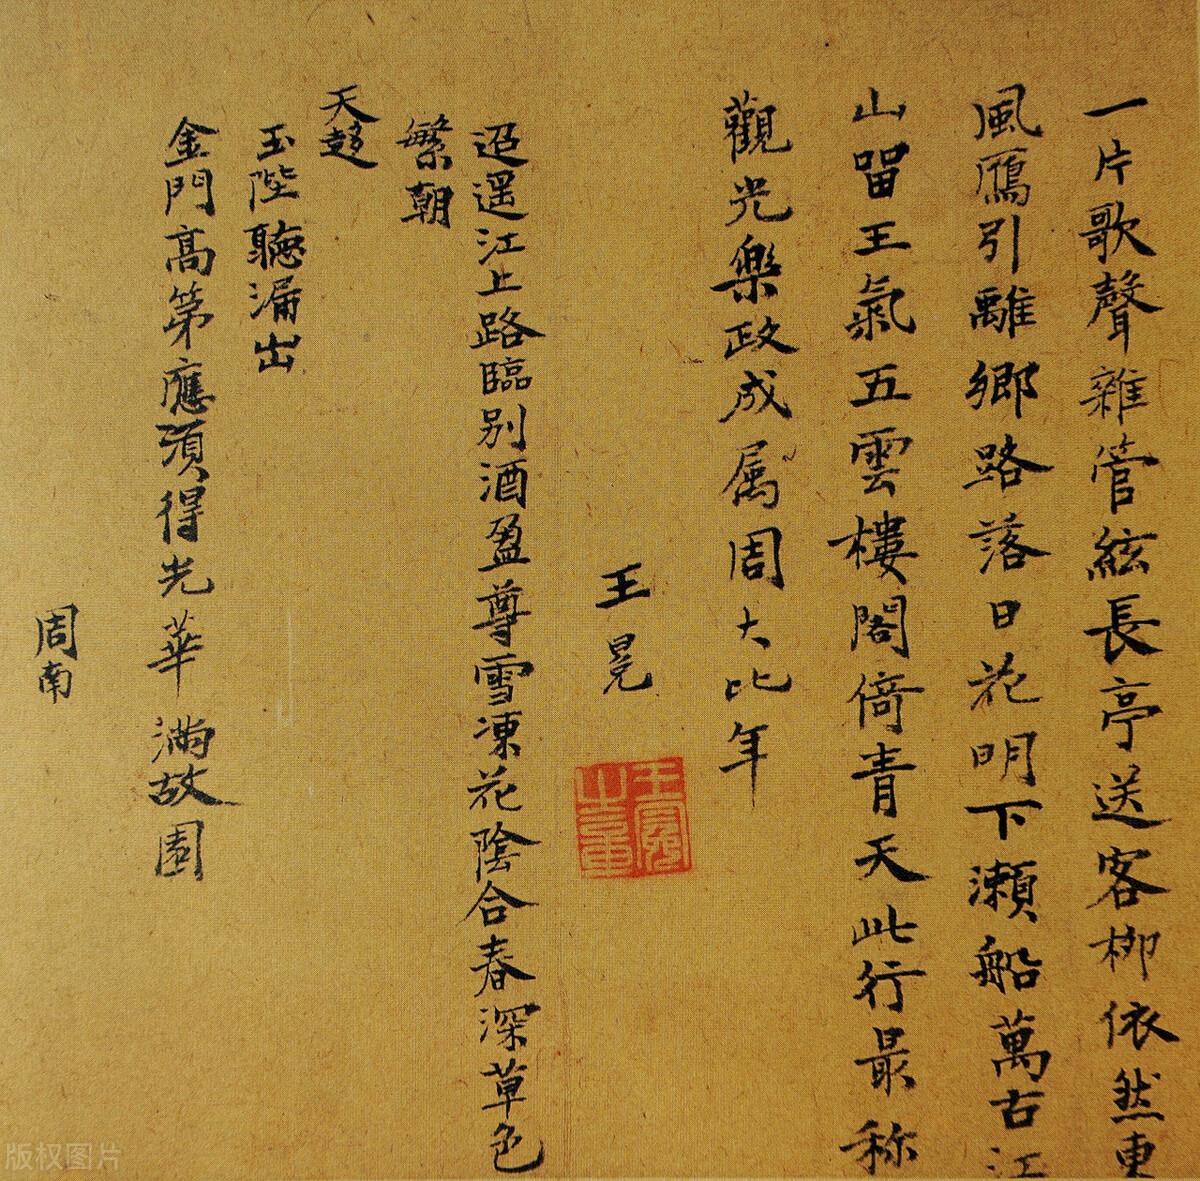 一片歌聲雜管絃長亭送客柳依然東
風鴈引離鄉路落日花明下瀨船萬古江
山留王氣五雲樓閣倚青天此行最称
觀光樂政成属周大比年
王冕
迢遥江上路臨别酒盈尊雪凍花陰合春深草色
繁朝
天趍
玉陛聽漏出
金門高第應須得光華滿故園
周南
版权图片